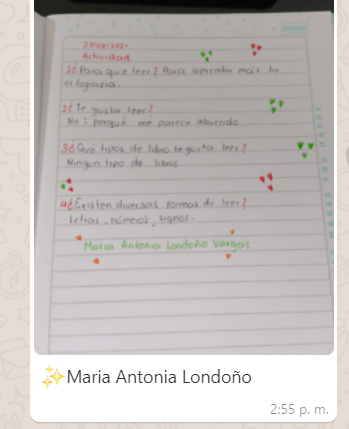 27/08/2021
Actividad
1¿Para que leer? Para aprender más la
ortografía.
2¿Te gusta leer?
No : porqué me parece aburrido
3¿Qué tipos de libro te gusta leer?
Ningun tipo de libros
4¿Existen diversas formas de leer?
Letras, números, signos.
Maria Antonia Londoño Vargas
✨Maria Antonia Londoño
2:55 p. m.